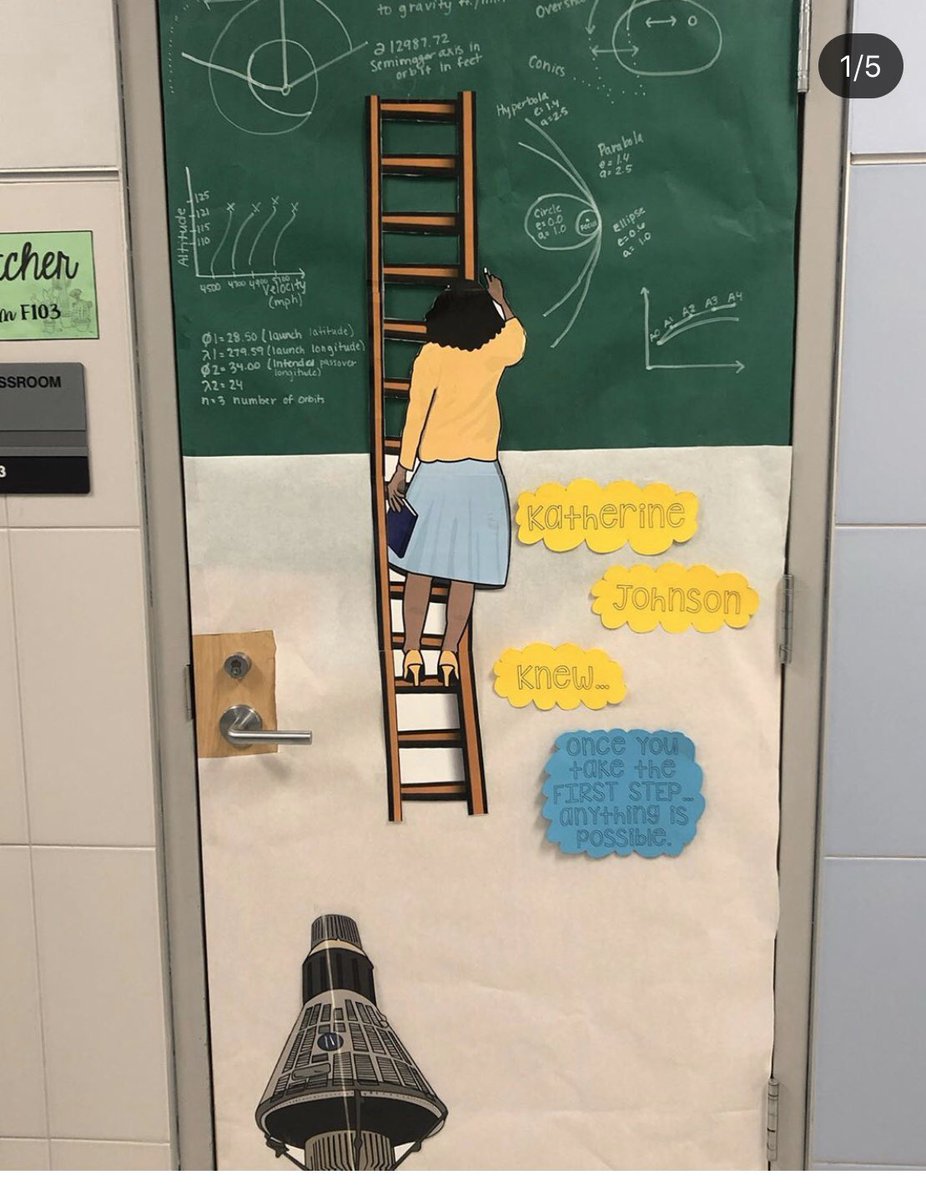 to gravity
1/5
a 12987.72
Semimajor axis in
orbit in feet
Conics
Hyperbola
e=1.4
a=2.5
Parabola
e=1.4
a=2.5
Circle
e=0.0
a=1.0
Focus
ellipse
a=1.0
125
121
115
110
Altitude
4500 4700 4900
Velocity
(mph)
A1 A2 A3 A4
Ø1=28.50 (launch latitude)
λ1=279.59 (launch longitude)
Ø2=34.00 (Intended passover
longitude)
λ2=24
n=3 number of orbits
F103
SSROOM
3
Katherine
Johnson
Knew...
Once you
take the
FIRST STEP...
anything is
possible.